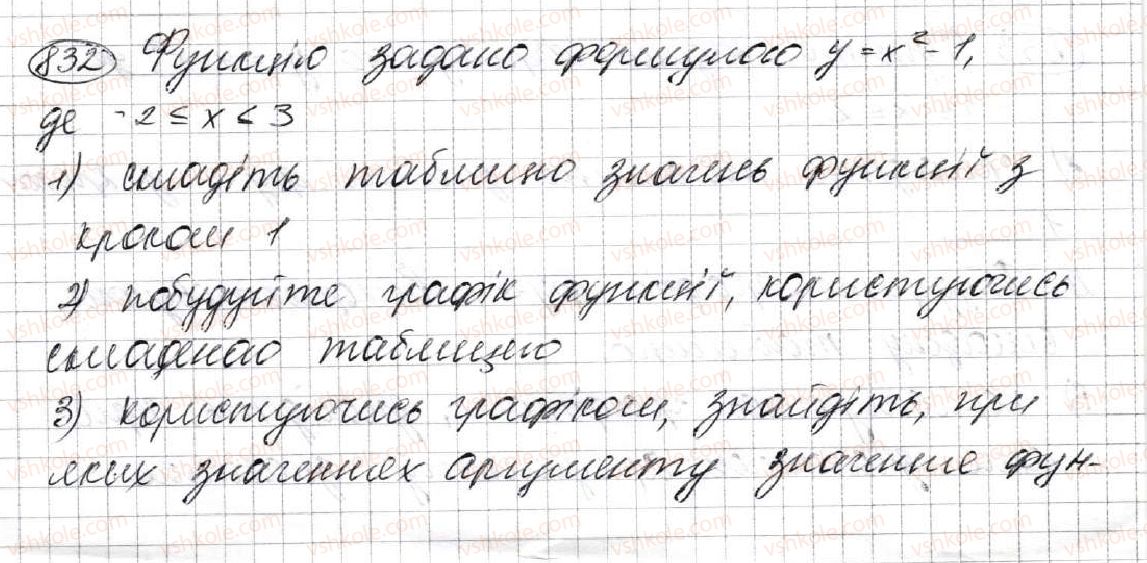 832 Функцію задано формулою y = x² - 1,
де -2 ≤ x < 3
1) складіть таблицю значень функції з
кроком 1
2) побудуйте графік функції, користуючись
складеною таблицею
3) користуючись графіком, знайдіть, при
яких значеннях аргументу значення фун-